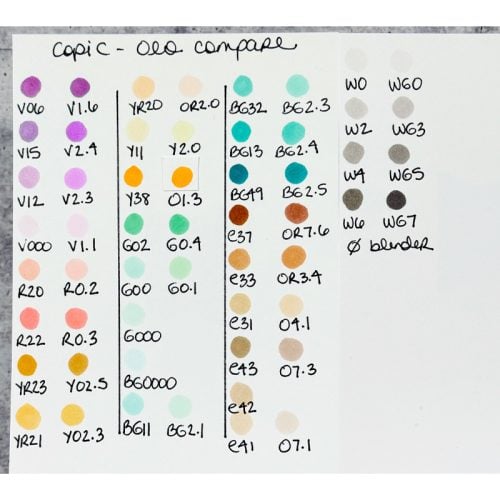 Copic - Olo compare
V06 V1.6
V15 V2.4
V12 V2.3
V000 V1.1
R20 R0.2
R22 R0.3
YR23 YO2.5
YR21 YO2.3
YR20 OR2.0
Y11 Y2.0
Y38 O1.3
G02 G0.4
G00 G0.1
G000
BG0000
BG11 BG2.1
BG32 BG2.3
BG13 BG2.4
BG49 BG2.5
e37 OR7.6
e33 OR3.4
e31 O4.1
e43 O7.3
e42
e41 O7.1
W0 WG0
W2 WG3
W4 WG5
W6 WG7
Ø blender